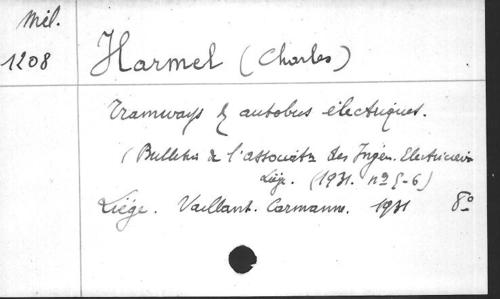 Mél.
1208
Harmel (Charles)
Tramways & autobus électriques.
(Bulletin de l'associat<sup>n</sup> des Ingén. Electriciens
Liége. (1931. n<sup>os</sup> 5-6)
Liége. Vaillant. Carmanne. 1931 8°